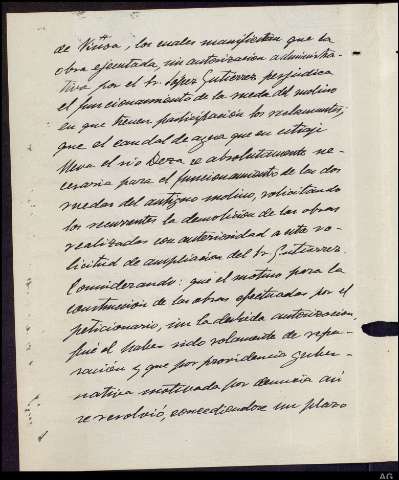 de Viñva, los cuales manifiestan que la
obra ejecutada, sin autorización administra-
tiva por el Sr. López Gutiérrez perjudica
el funcionamiento de la rueda del molino
en que tienen participación los reclamantes,
que el caudal de agua que en estiaje
lleva el río Deva es absolutamente ne-
cesario para el funcionamiento de las dos
ruedas del antiguo molino, solicitando
los recurrentes la demolición de las obras
realizadas con anterioridad a esta so-
licitud de ampliación del Sr Gutiérrez.
Considerando: que el motivo para la
construcción de las obras efectuadas por el
peticionario, sin la debida autorización,
fué el haber sido solamente de repa-
ración y que por providencia guber-
nativa motivada por denuncia así
se resolvió, concediéndose un plazo
AG